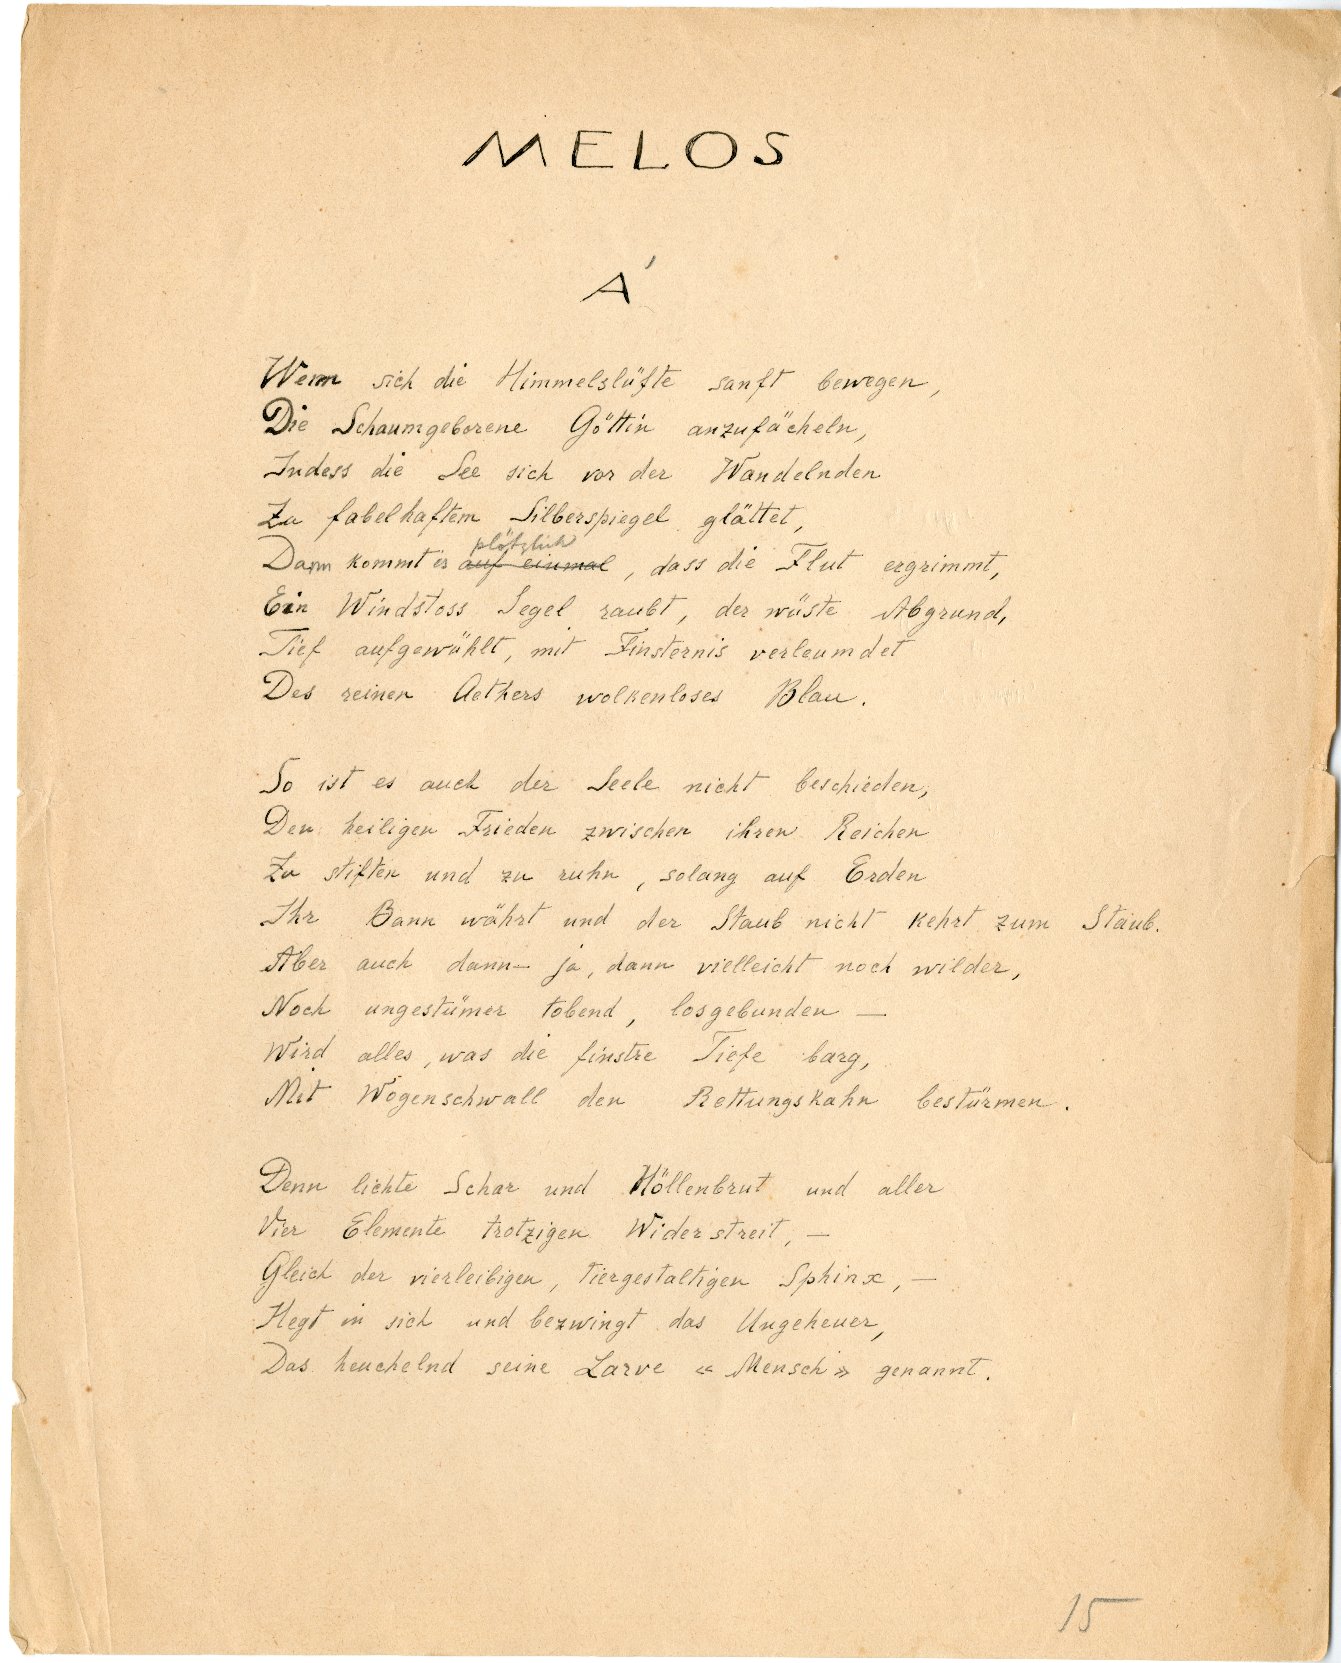 MELOS
A'
Wenn sich die Himmelslüfte sanft bewegen,
Die Schaumgeborene Göttin anzufächeln,
Indess die See sich vor der Wandelnden
Zu fabelhaftem Silberspiegel glättet,
plötzlich
Dann kommt es auf einmal, dass die Flut ergrimmt,
Ein Windstoss Segel raubt, der wüste Abgrund,
Tief aufgewühlt, mit Finsternis verleumdet
Des reinen Aethers wolkenloses Blau.
So ist es auch der Seele nicht beschieden,
Den heiligen Frieden zwischen ihren Reichen
Zu stiften und zu ruhn, solang auf Erden
Ihr Bann währt und der Staub nicht kehrt zum Staub.
Aber auch dann – ja, dann vielleicht noch wilder,
Noch ungestümer tobend, losgebunden —
Wird alles, was die finstre Tiefe barg,
Mit Wogenschwall den Rettungskahn bestürmen.
Denn lichte Schar und Höllenbrut und aller
Vier Elemente trotzigen Widerstreit, —
Gleich der vierleibigen, tiergestaltigen Sphinx, —
Hegt in sich und bezwingt das Ungeheuer,
Das heuchelnd seine Larve « Mensch » genannt.
15